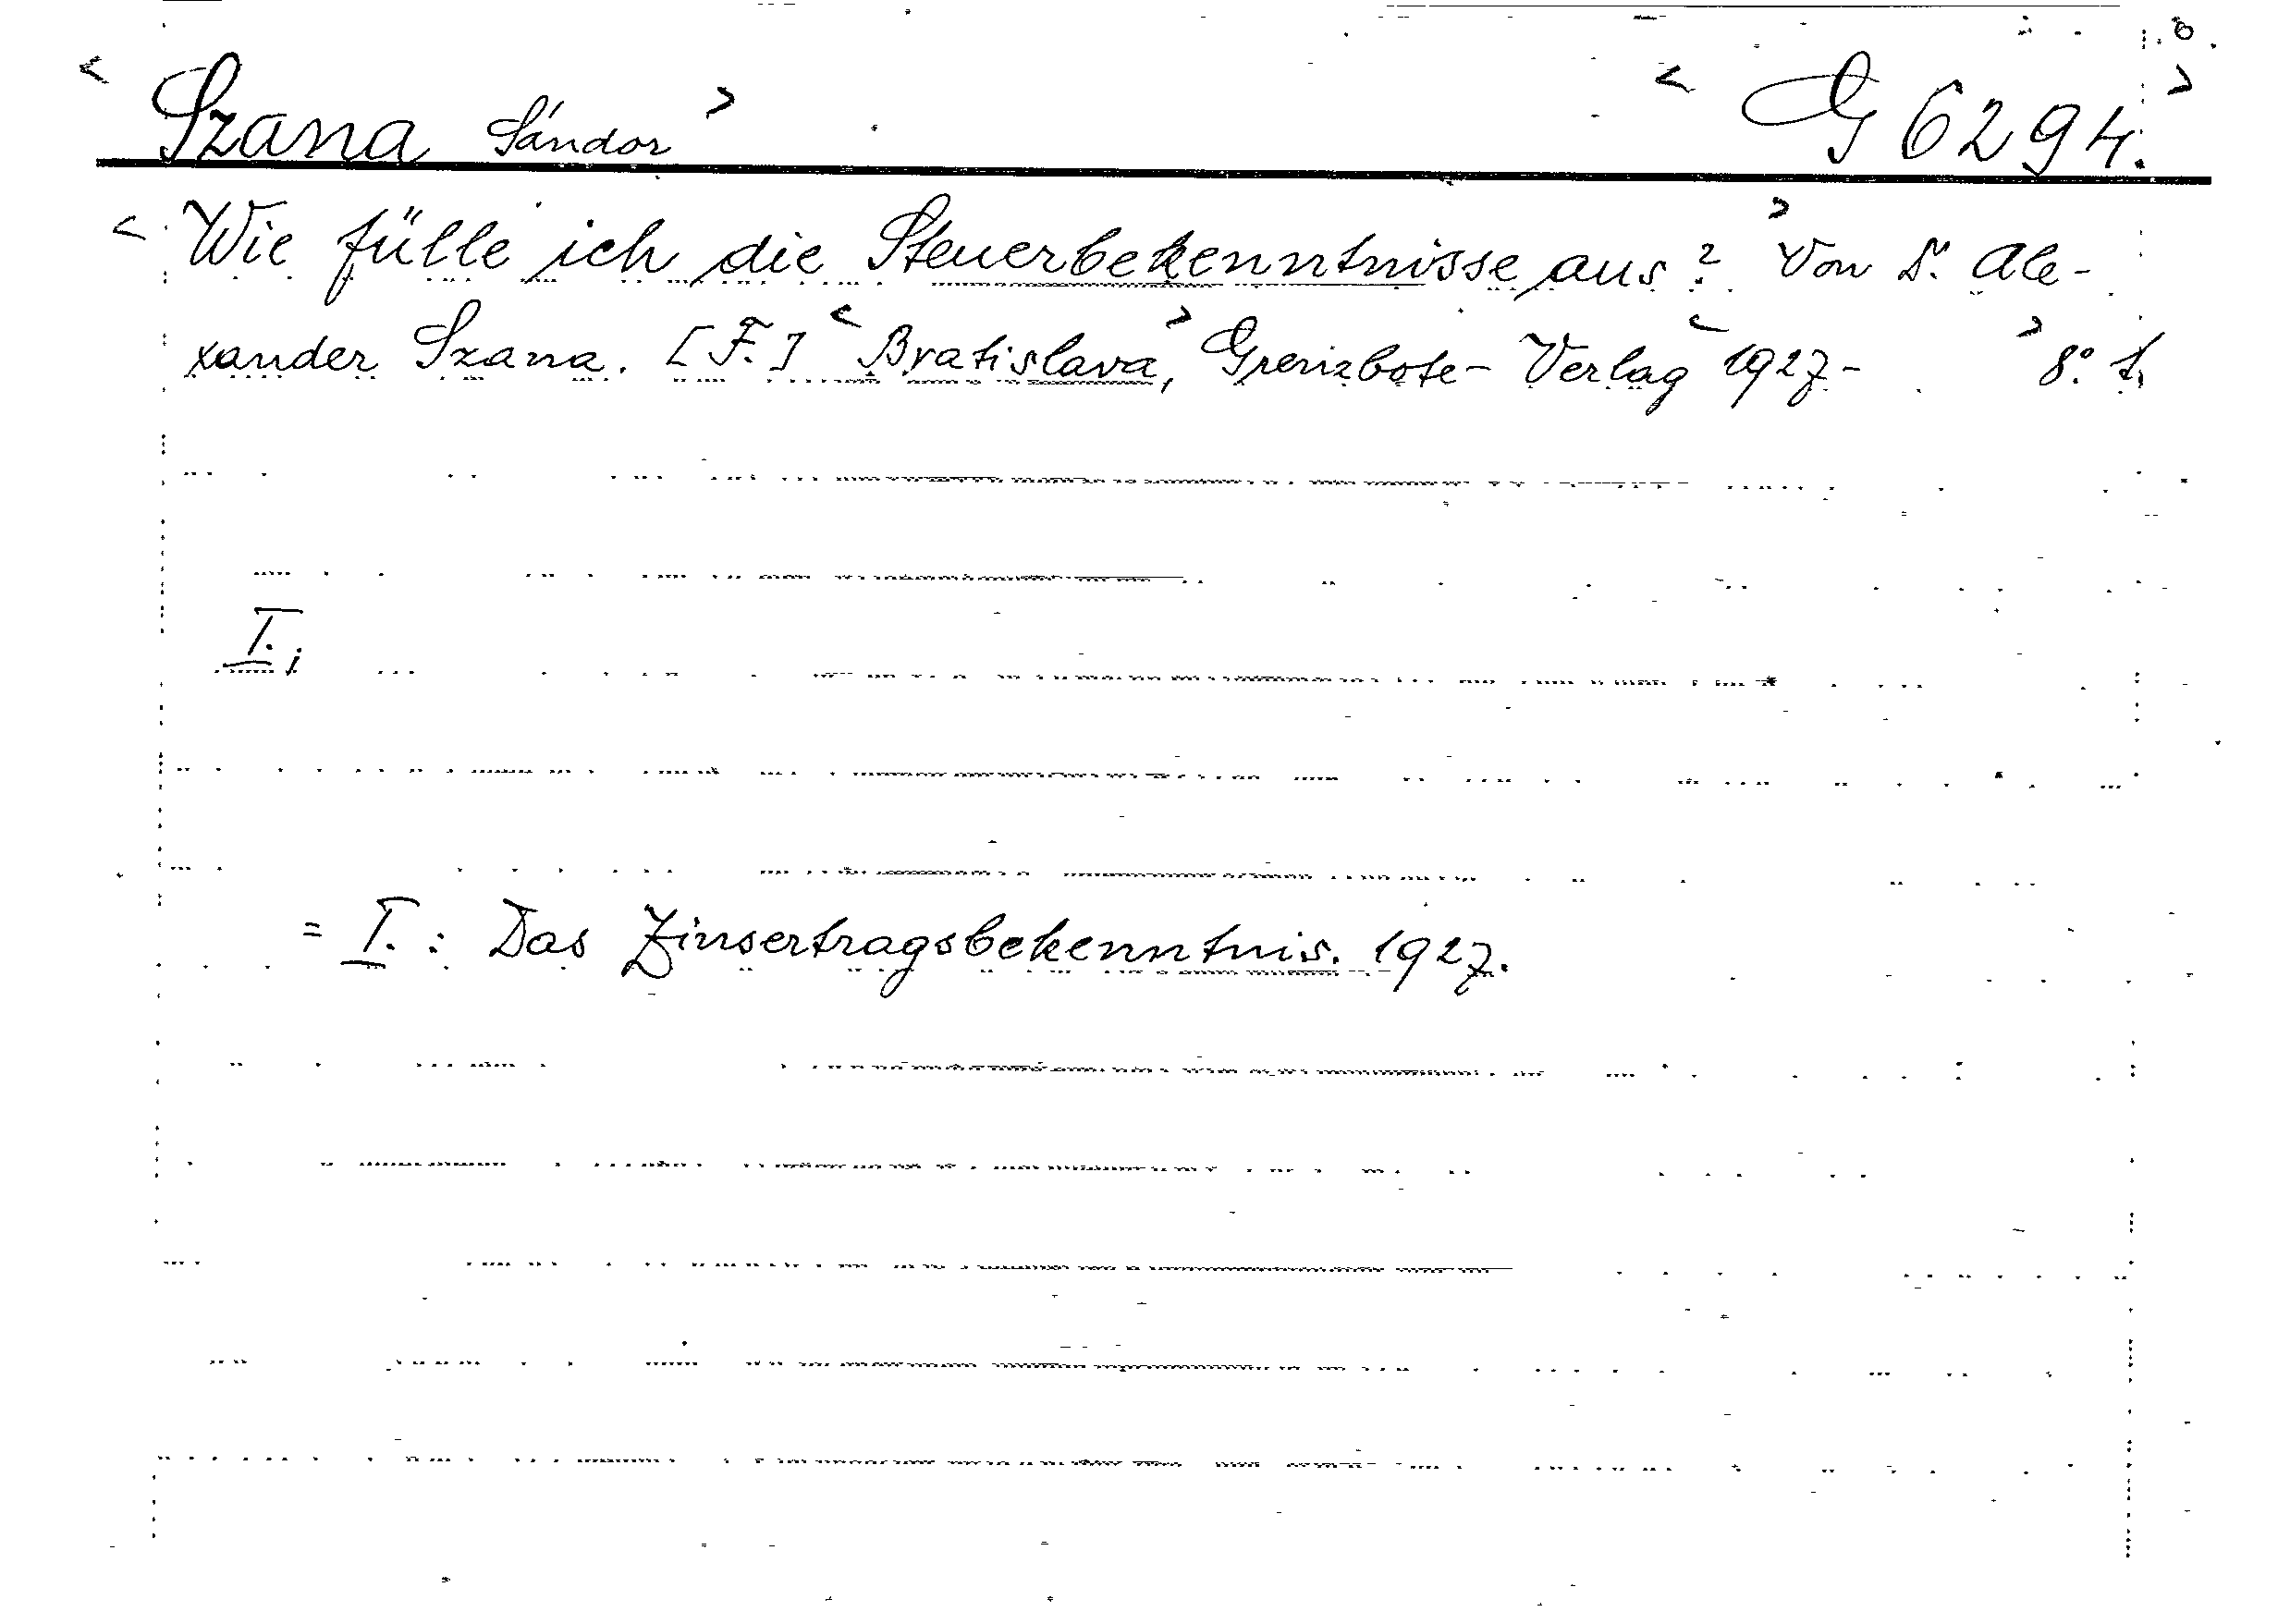 < Szana Sándor > < G 6294. >
< Wie fülle ich die Steuerbekenntnisse aus? > Von Dr. Ale-
xander Szana. [F.] < Bratislava, > Grenzbote-Verlag < 1927- > 8°.
I.;
= I.: Das Zinsertragsbekenntnis. 1927.